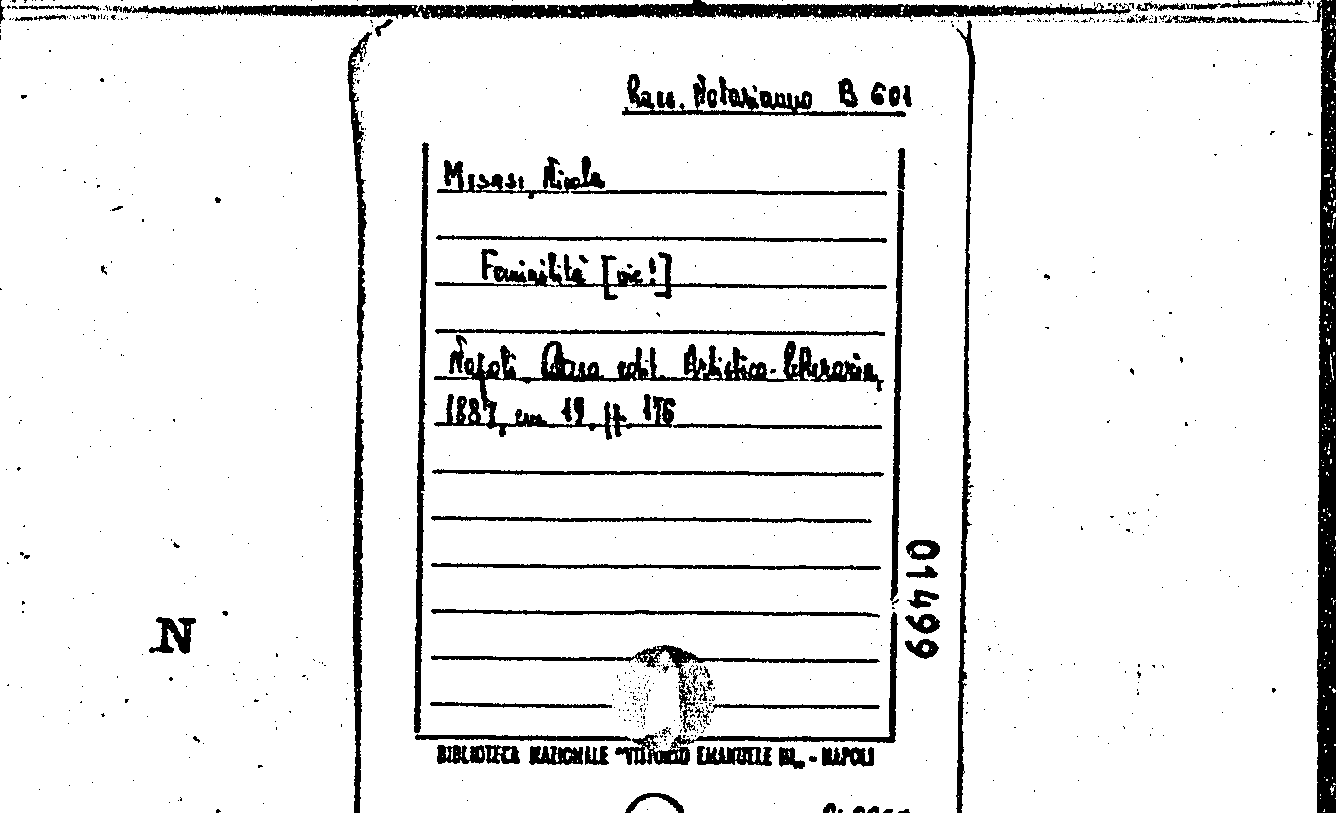 Racc. Notarianno B 601
Misasi, Nicola
Feminilità [sic!]
Napoli, Casa edit. Artistico-letteraria,
1887, cm 19, pp. 176
01499
N
BIBLIOTECA NAZIONALE "VITTORIO EMANUELE III„ - NAPOLI